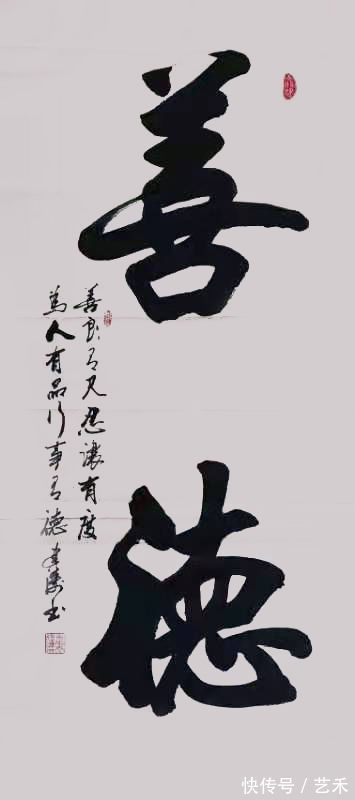 善德
善良有尺忍讓有度
為人有品行事有德
書
快传号/艺禾